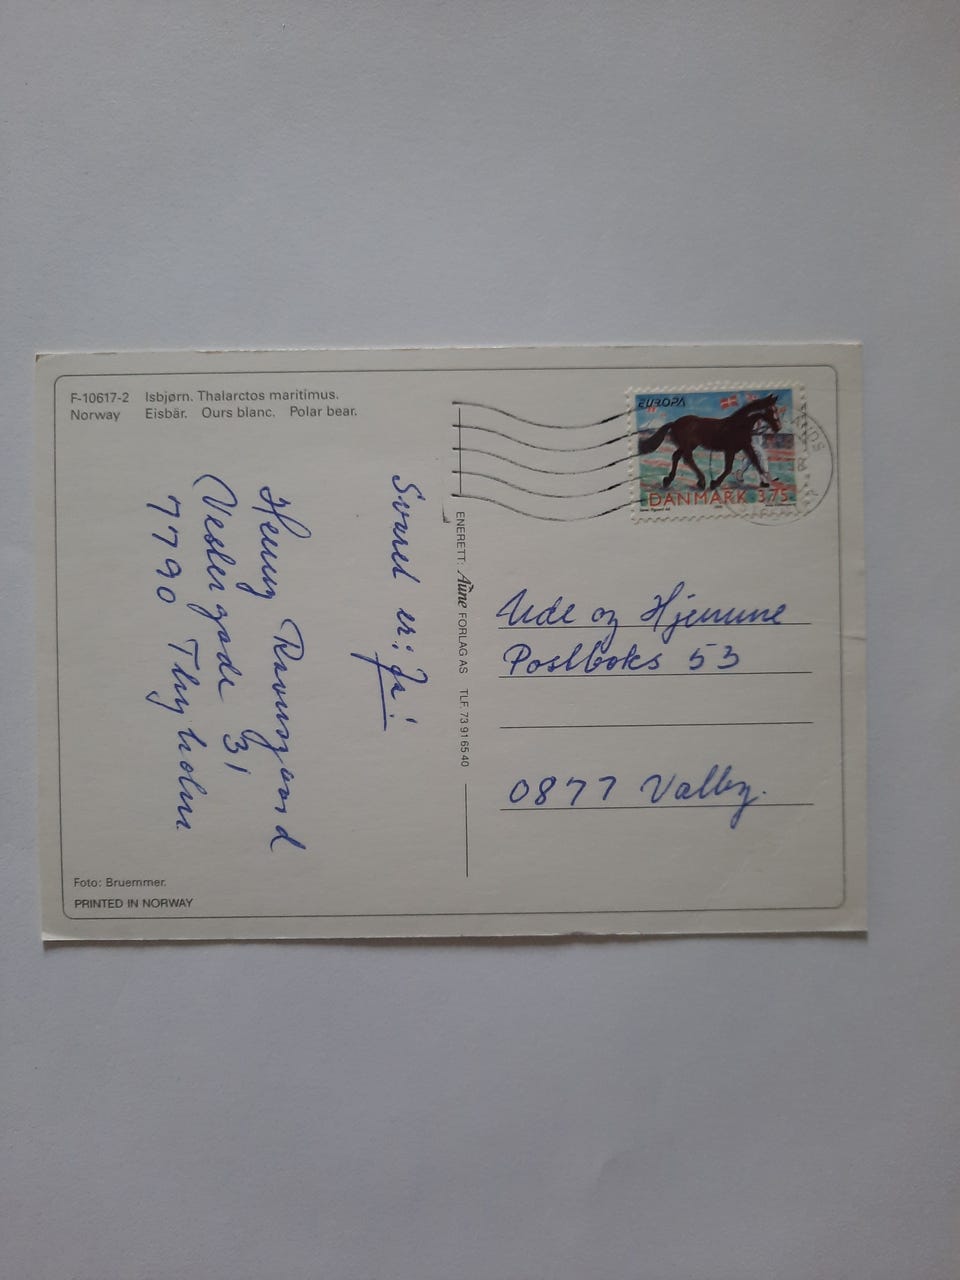 F-10617-2 Isbjørn. Thalarctos maritimus.
Norway Eisbär. Ours blanc. Polar bear.
EUROPA
DANMARK 3.75
Svaret er: Ja!
Henny
Vestergade 31
7790 Thyholm
ENERETT: Aune FORLAG AS TLF. 73 91 65 40
Ude og Hjemme
Postboks 53
0877 Valby.
Foto: Bruemmer.
PRINTED IN NORWAY